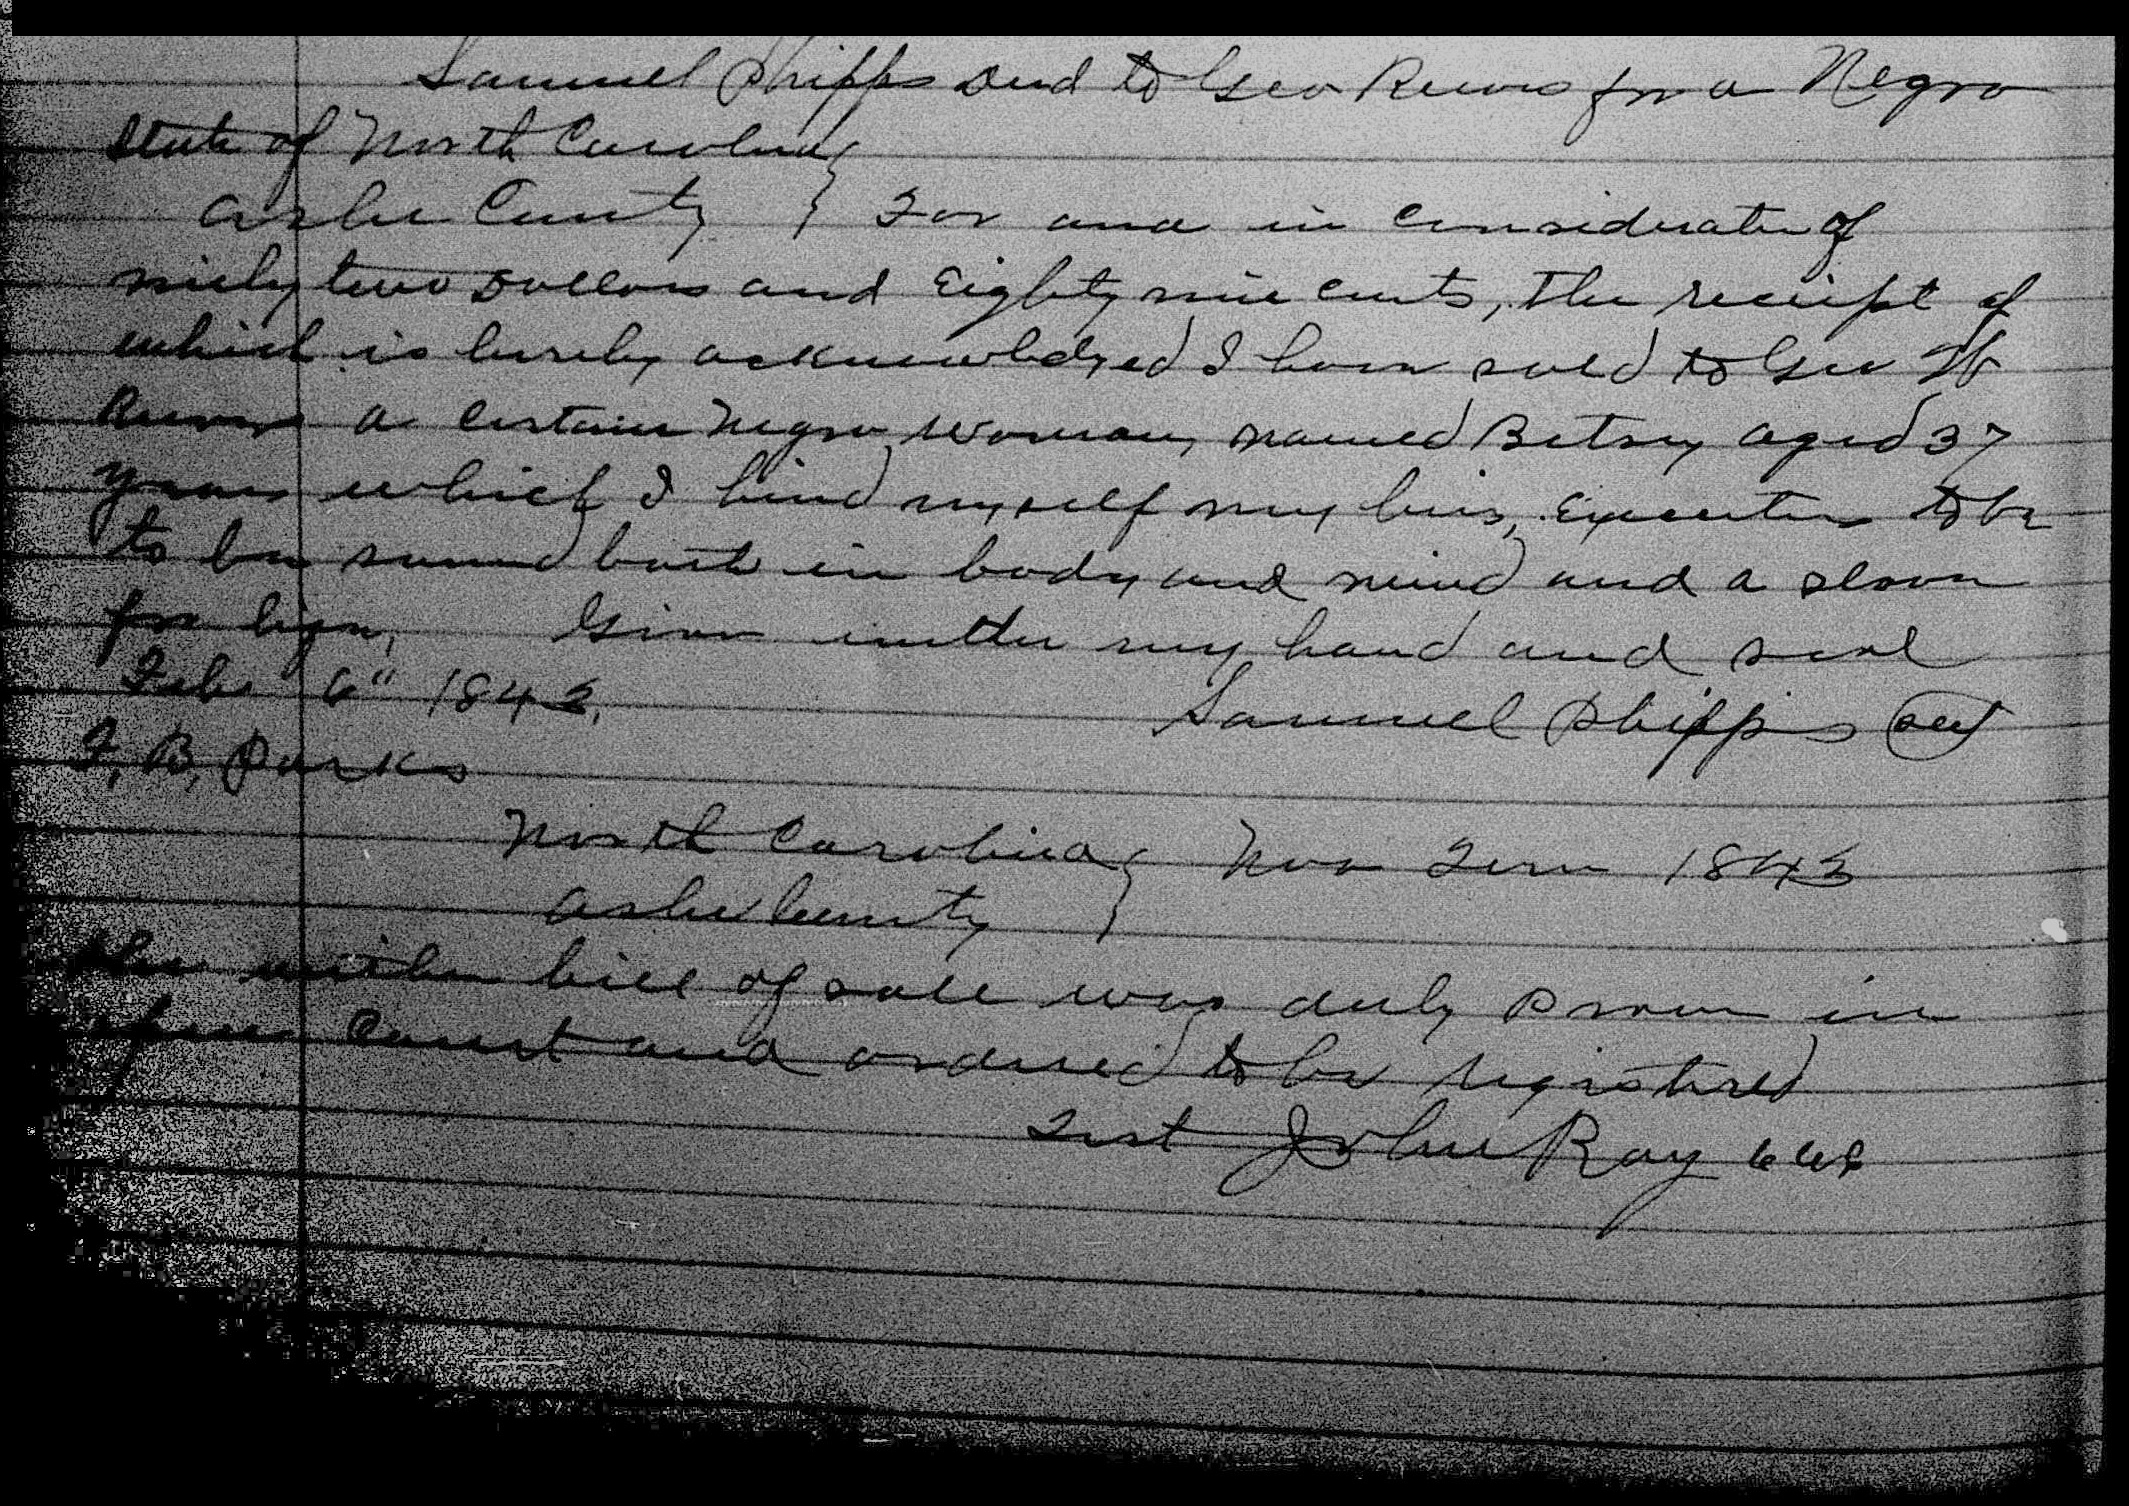 Samuel Phipps Deed to Geo Reeves for a Negro
State of North Carolina
Ashe County } For and in consideration of
ninty two Dollars and Eighty nine cents, the receipt of
which is hereby acknowledged I have sold to Geo W
Reeves a certain Negro woman, named Betsy aged 37
years which I bind myself my heirs, Executors to be
to be sound both in body and mind and a slave
for life, Given under my hand and seal
Feb 6" 1843.
Samuel Phipps seal
F, B, Parks
North Carolina } Nov Term 1843
Ashe County
the within bill of sale was duly proven in
open Court and ordered to be registered
Test John Ray